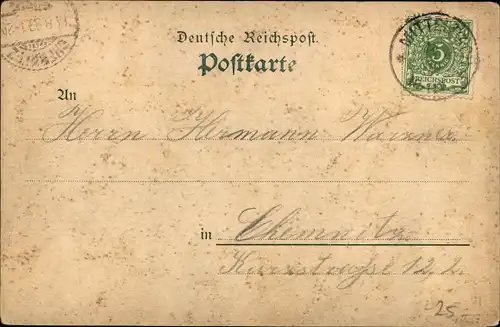 Deutsche Reichspost.
Postkarte
5
REICHSPOST
An
Herrn Hermann
in Chemnitz
12, 2.
25